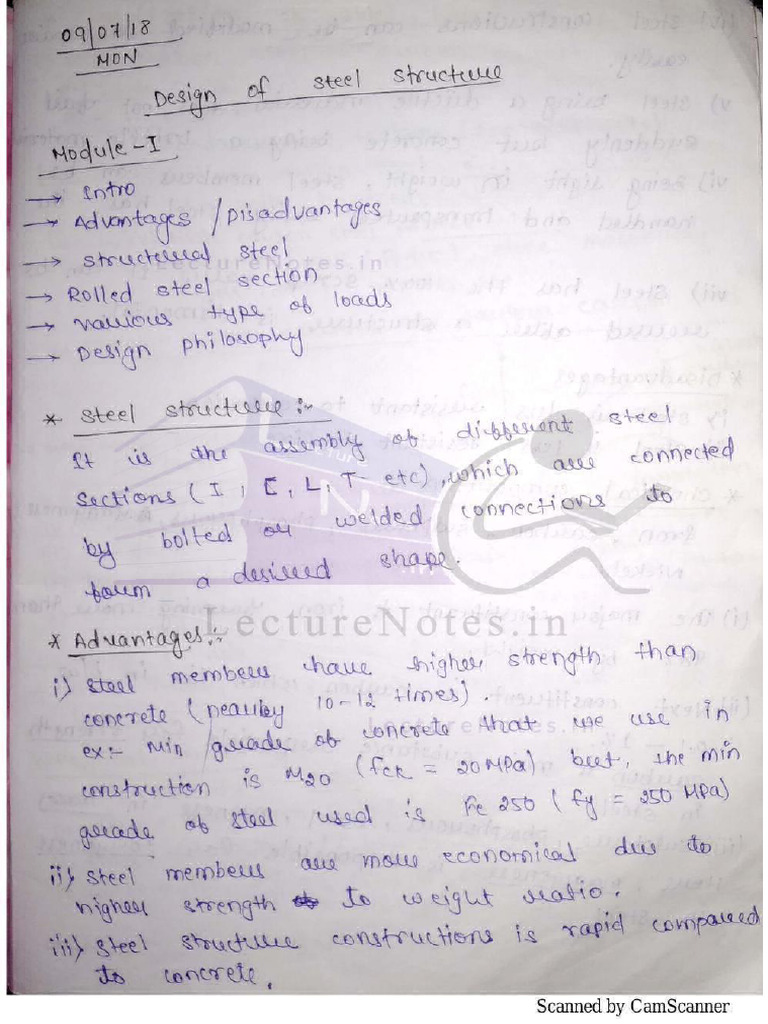 09/07/18
MON
Design of steel structure
Module-I
→ Intro
→ Advantages / Disadvantages
→ structural steel
LectureNotes.in
→ Rolled steel section
→ various type of loads
→ Design philosophy
* Steel structure :-
It is the assembly of different steel
sections (I, C, L, T etc), which are connected
by bolted or welded connections to
form a desired shape.
LectureNotes.in
* Advantages :-
i) steel members have higher strength than
concrete (nearly 10-12 times).
LectureNotes.in
ex:- Min grade of concrete that we use in
construction is M20 (fck = 20 MPa) but, the min
grade of steel used is Fe 250 (fy = 250 MPa)
ii) steel members are more economical due to
higher strength to weight ratio.
iii) steel structure constructions is rapid compared
to concrete.
Scanned by CamScanner